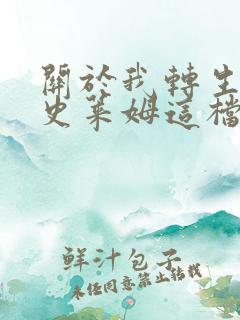 關於我轉生
史萊姆這檔
鮮汁包子
未任同意禁止轉載